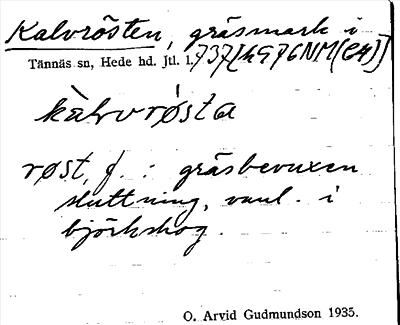 Kalvrösten, gräsmark i
Tännäs sn, Hede hd. Jtl. l.
kàlvrǿsta
røst, f. : gräsbevuxen
sluttning, vanl. i
björkskog.
O. Arvid Gudmundson 1935.